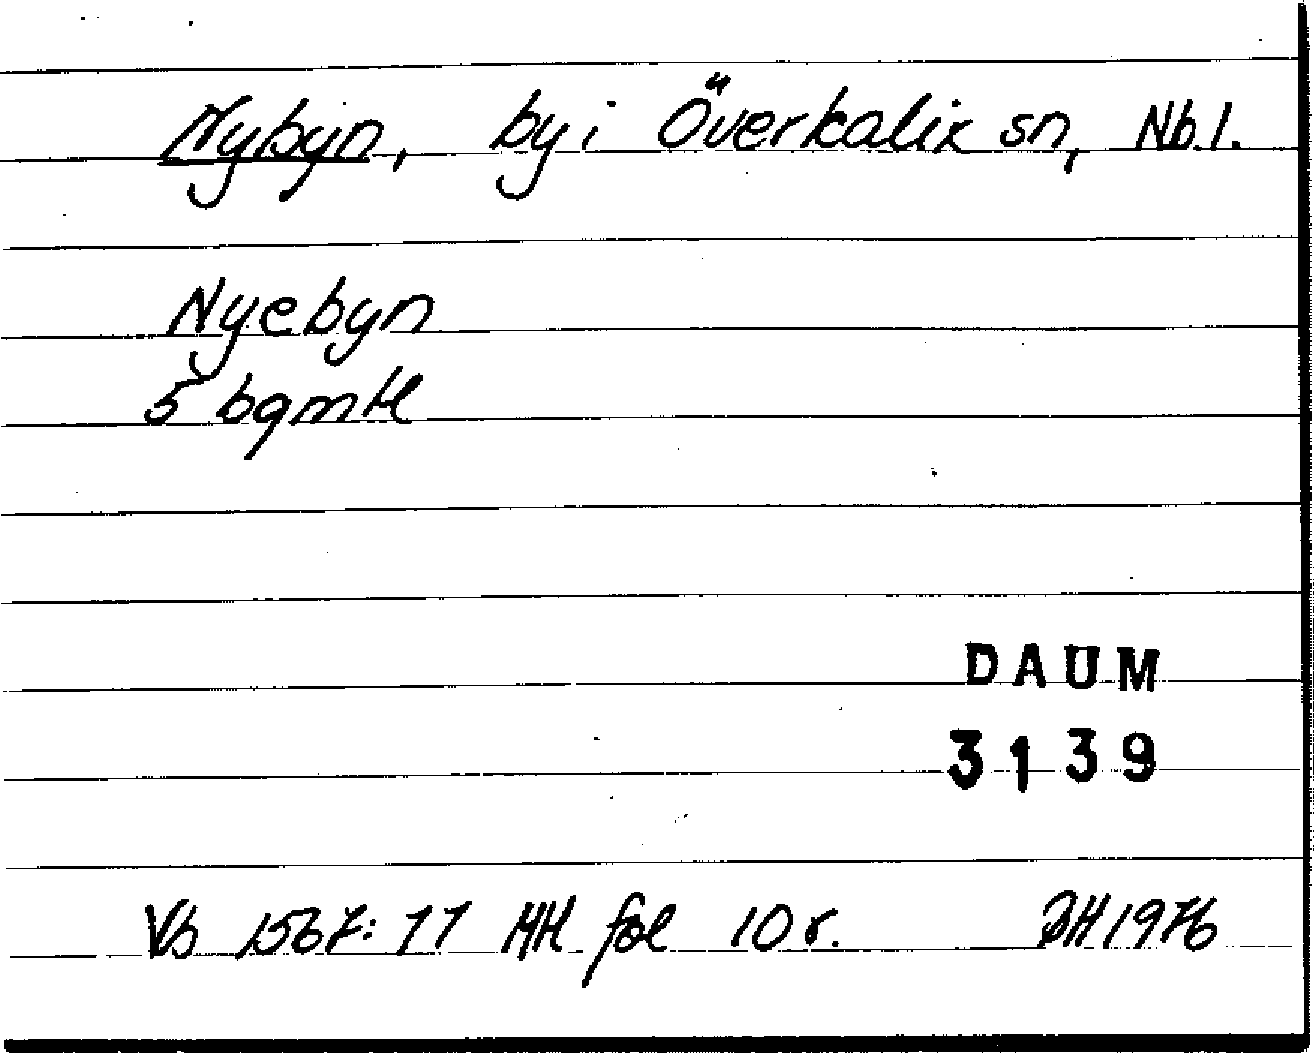 Nybyn, by i Överkalix sn, Nb l.
Nyebyn
5 bgmtl
DAUM
3139
Vb 1567:11 MH fol 10 r.